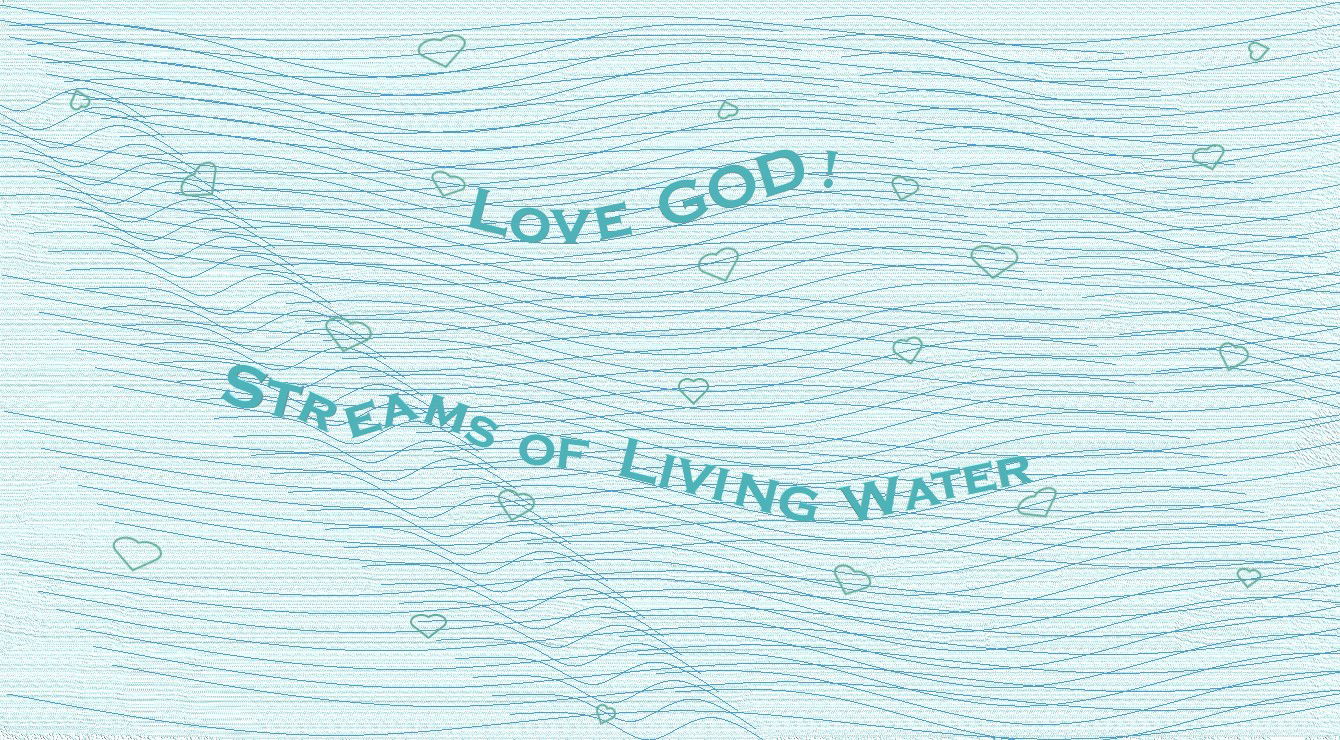 Love GOD!
Streams of Living Water